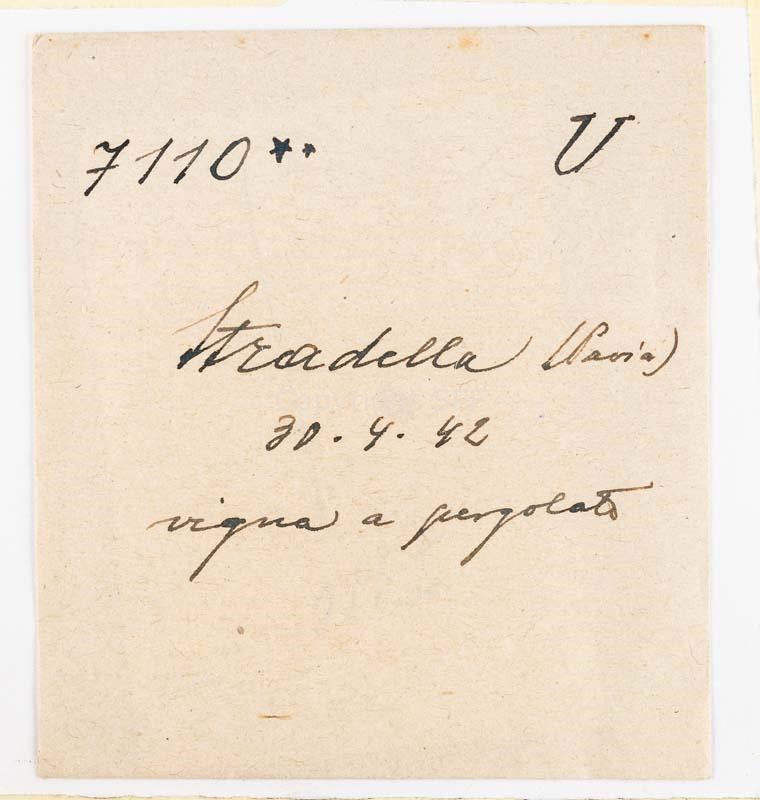 7110** U
Stradella (Pavia)
30.4.42
vigna a pergolato